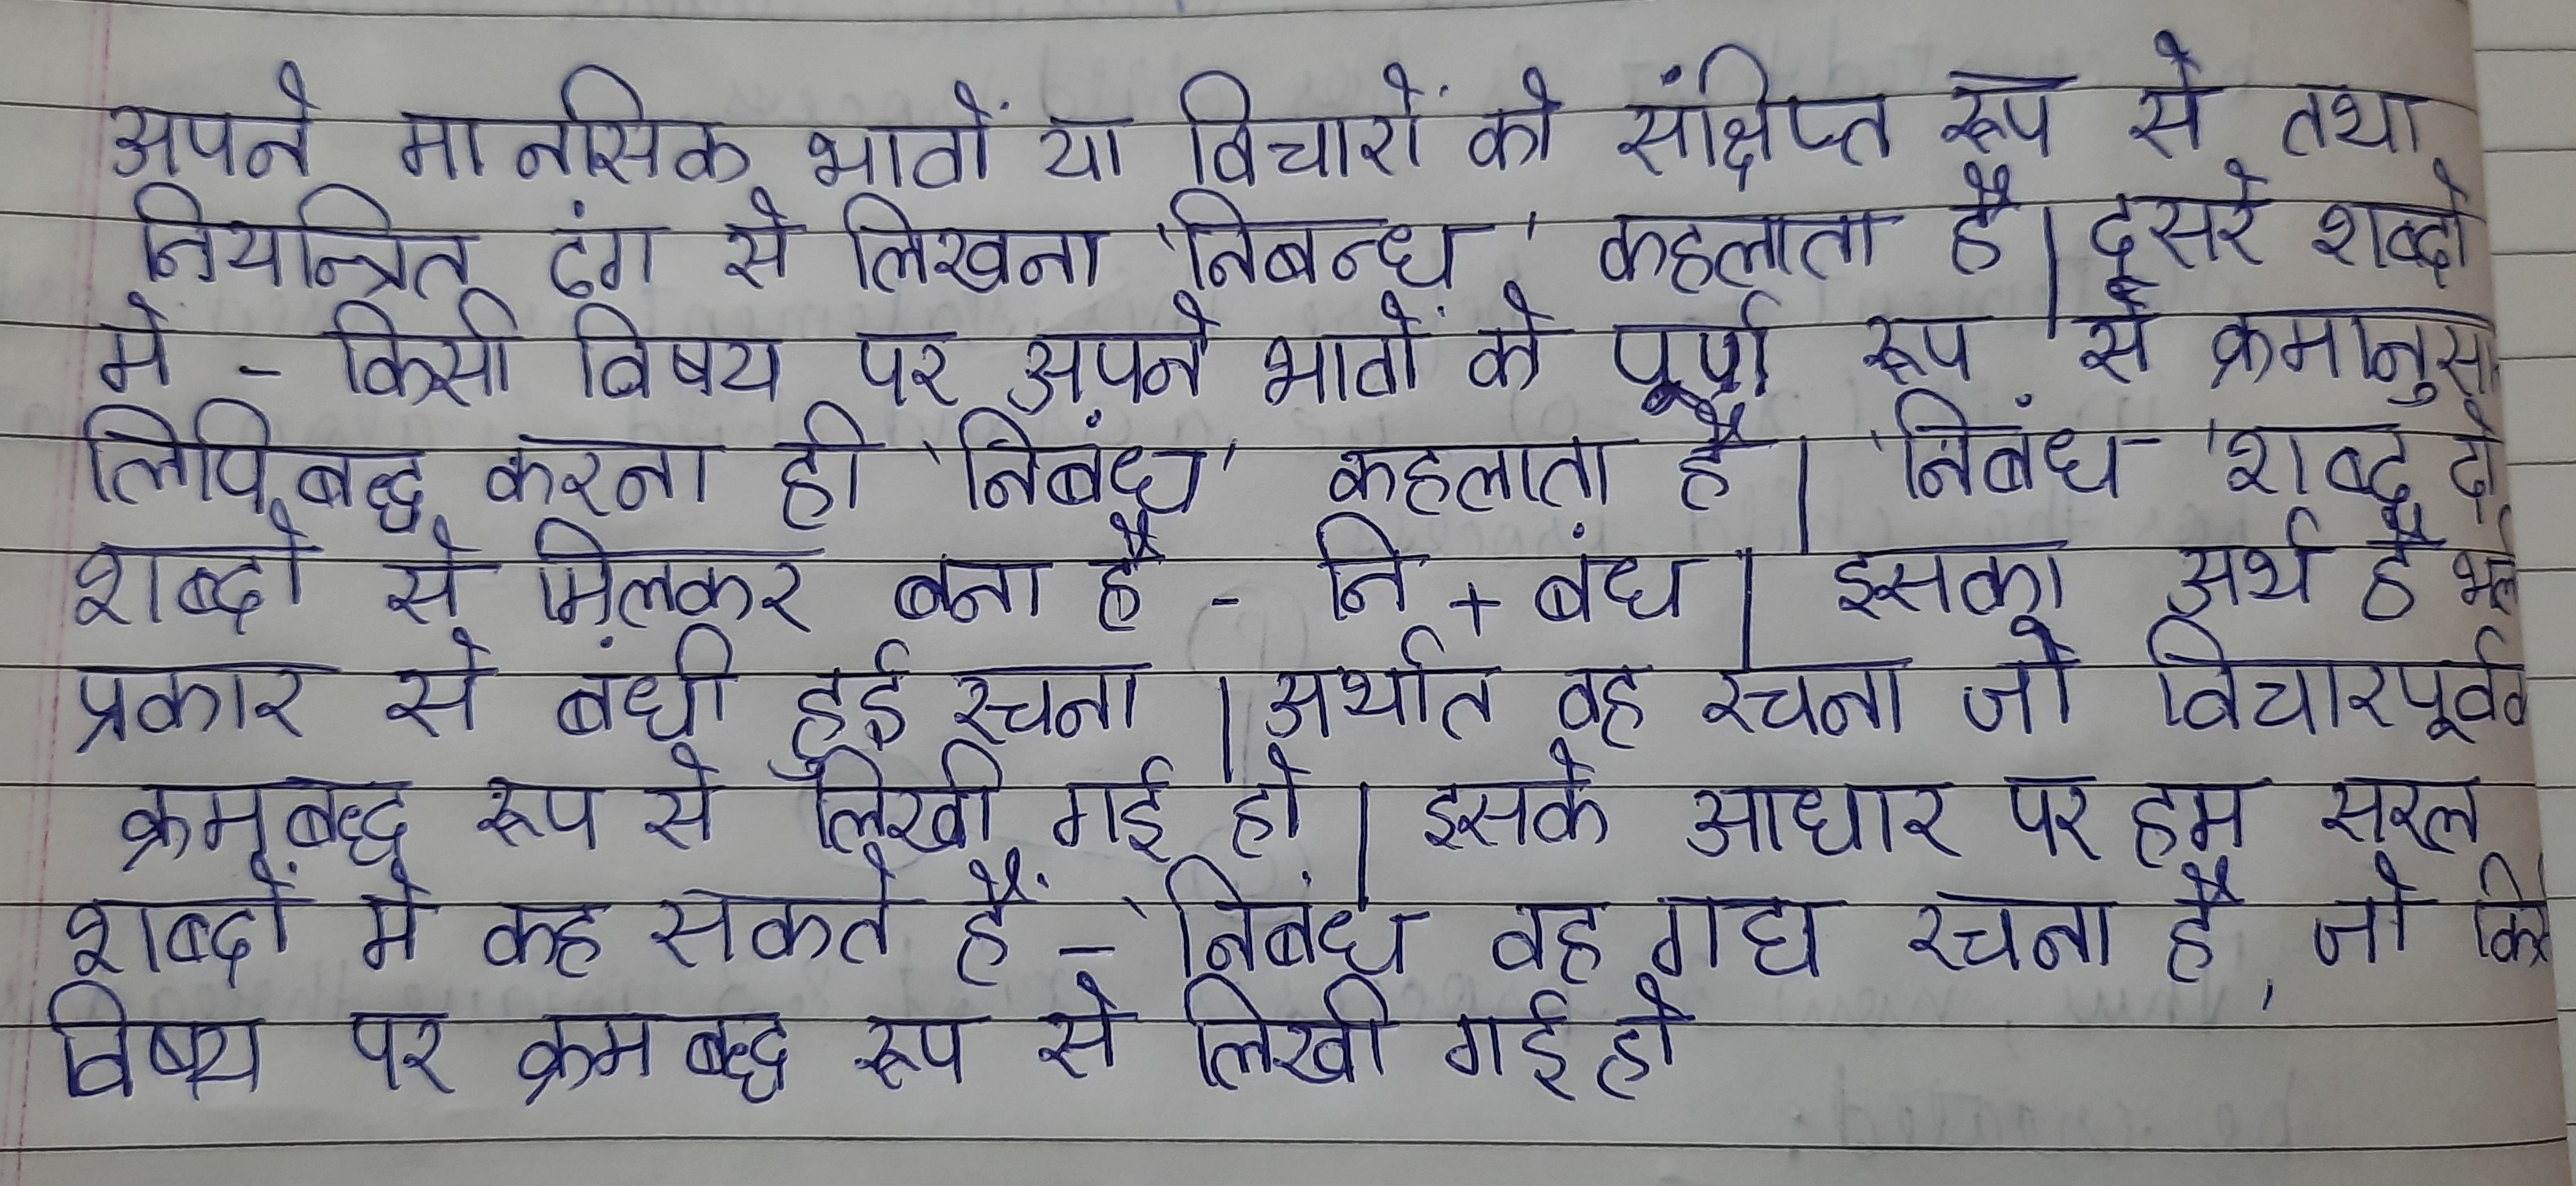 अपने मानसिक भावों या विचारों को संक्षिप्त रूप से तथा
नियन्त्रित ढंग से लिखना 'निबन्ध' कहलाता है। दूसरे शब्दो
मे - किसी विषय पर अपने भावों को पूर्ण रूप से क्रमानुसा
लिपिबद्ध करना ही 'निबंध' कहलाता है। 'निबंध' शब्द दो
शब्दो से मिलकर बना है - नि + बंध। इसका अर्थ है
प्रकार से बंधी हुई रचना। अर्थात वह रचना जो विचारपूर्वक
क्रमबद्ध रूप से लिखी गई हो। इसके आधार पर हम सरल
शब्दों मे कह सकते हैं - 'निबंध वह गद्य रचना है, जो
विषय पर क्रमबद्ध रूप से लिखी गई हो